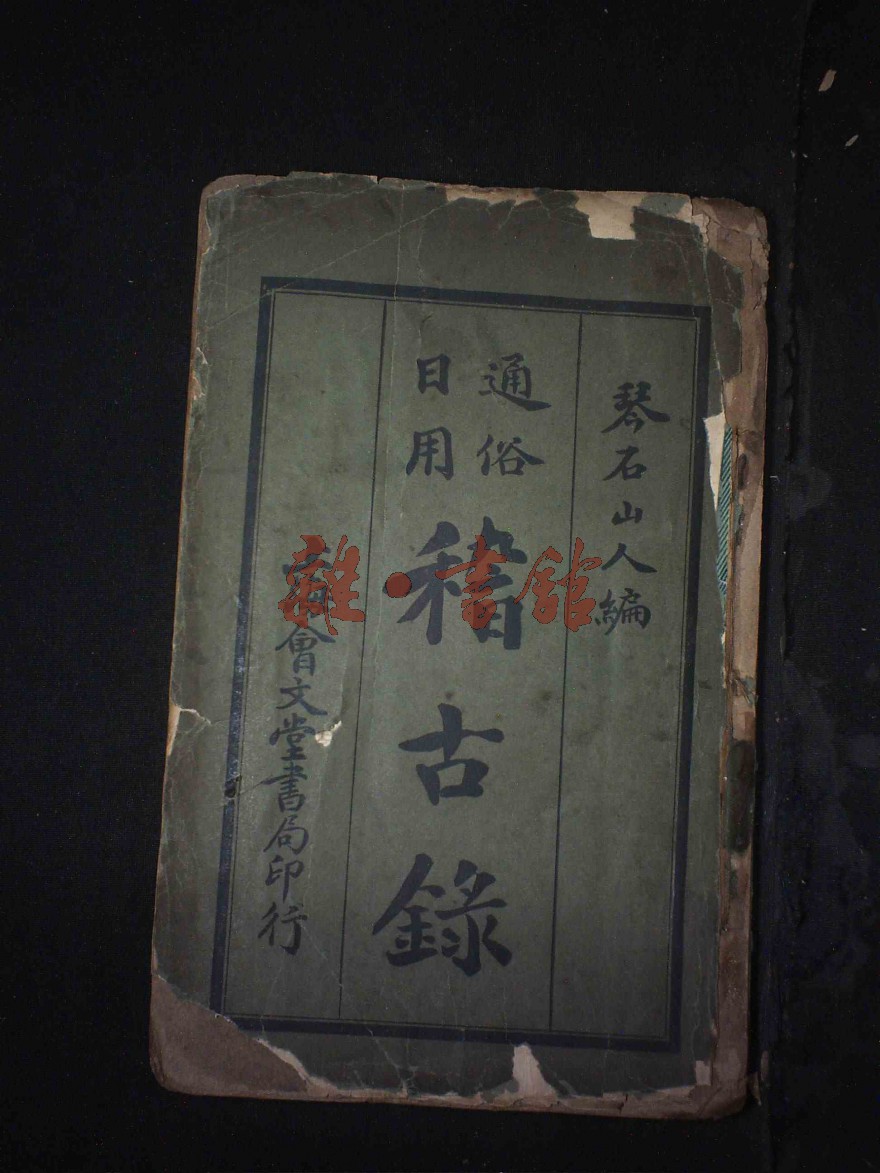 琴石山人編
通俗
日用
稽古錄
會文堂書局印行
雜·書館